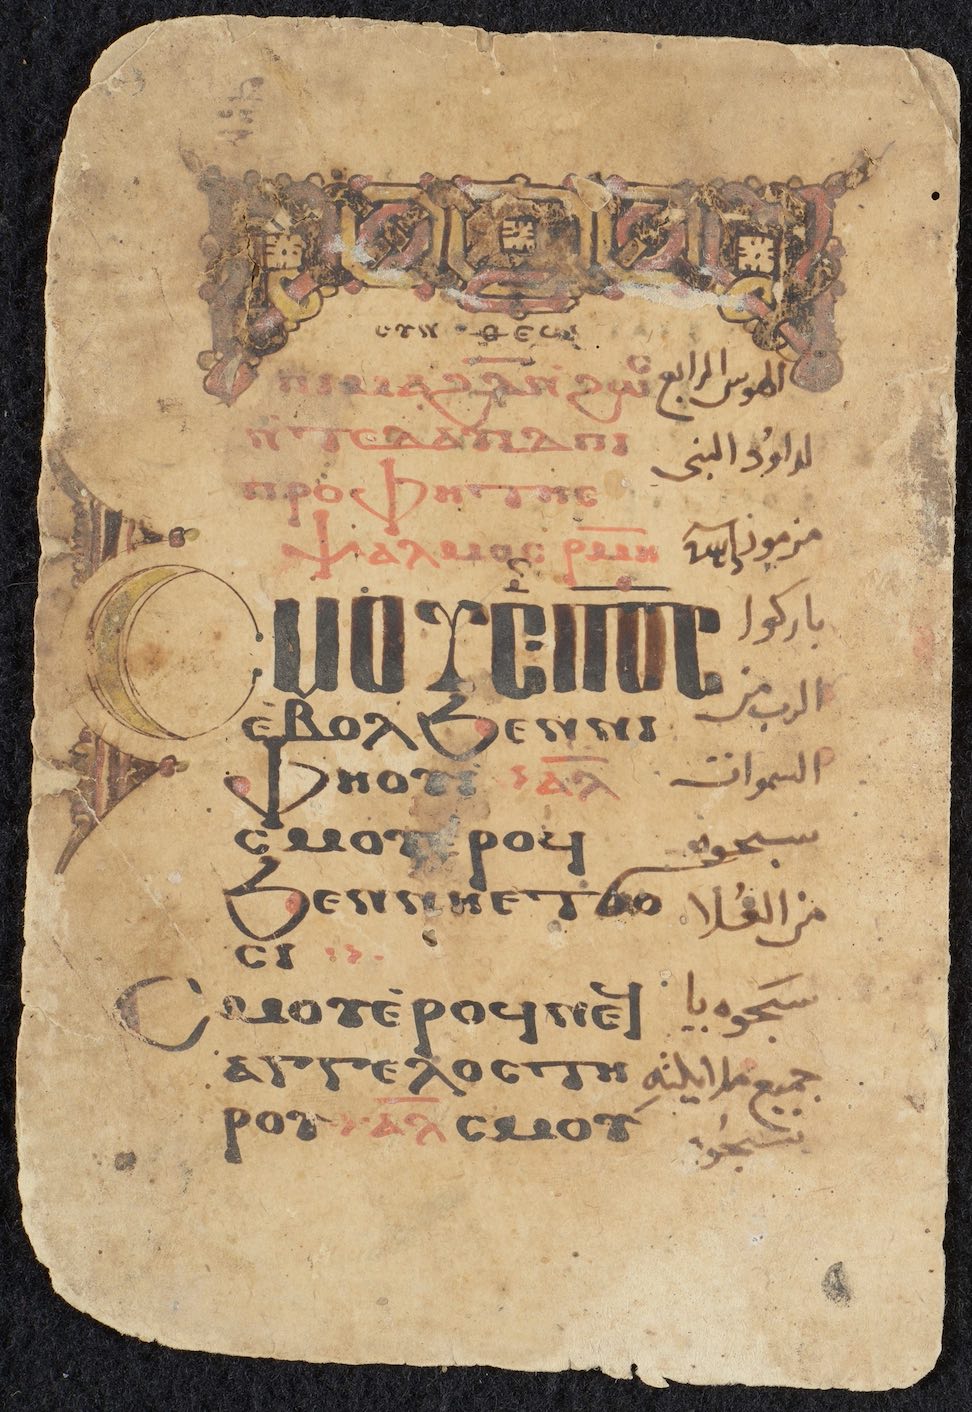 ⲥⲩⲛ ⲑⲉⲱ
ⲛ̀ⲧⲉⲇⲁⲇ ⲡⲓ
ⲡⲣⲟⲫⲏⲧⲏⲥ
ⲯⲁⲗⲙⲟⲥ ⲣ̅ⲙ̅ⲏ̅
Ⲥⲙⲟⲩ ⲉ̀ⲡ̅ⲟ̅ⲥ̅
ⲉ̀ⲃⲟⲗ ϧⲉⲛ ⲛⲓ
ⲫⲏⲟⲩⲓ̀ ⲁ̅ⲗ̅
ⲥⲙⲟⲩ ⲉ̀ⲣⲟϥ
ϧⲉⲛ ⲛⲏⲉⲧϭⲟ
ⲥⲓ
Ⲥⲙⲟⲩ ⲉ̀ⲣⲟϥ ⲛⲉϥ
ⲁⲅⲅⲉⲗⲟⲥ ⲧⲏ
ⲣⲟⲩ ⲁ̅ⲗ̅ ⲥⲙⲟⲩ
الهوس الرابع
لداوُد النبى
مزمور
باركوا
الرب من
السموات
سبحوه
من العُلا
سبحوه يا
جميع ملايكته